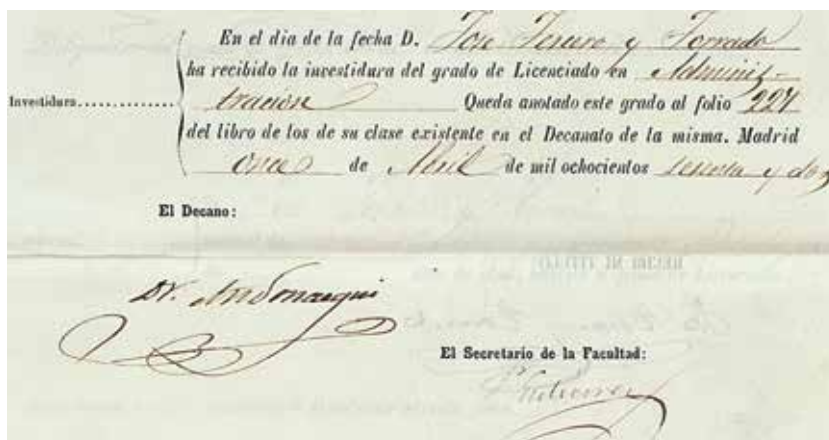 En el dia de la fecha D. José Tercero y Torrado
ha recibido la investidura del grado de Licenciado en Adminis-
Investidura............. tracion Queda anotado este grado al folio 227
del libro de los de su clase existente en el Decanato de la misma. Madrid
once de Abril de mil ochocientos sesenta y dos
El Decano:
RECIBI MI TITULO
Dr. Andonaegui
El Secretario de la Facultad:
Gutierrez